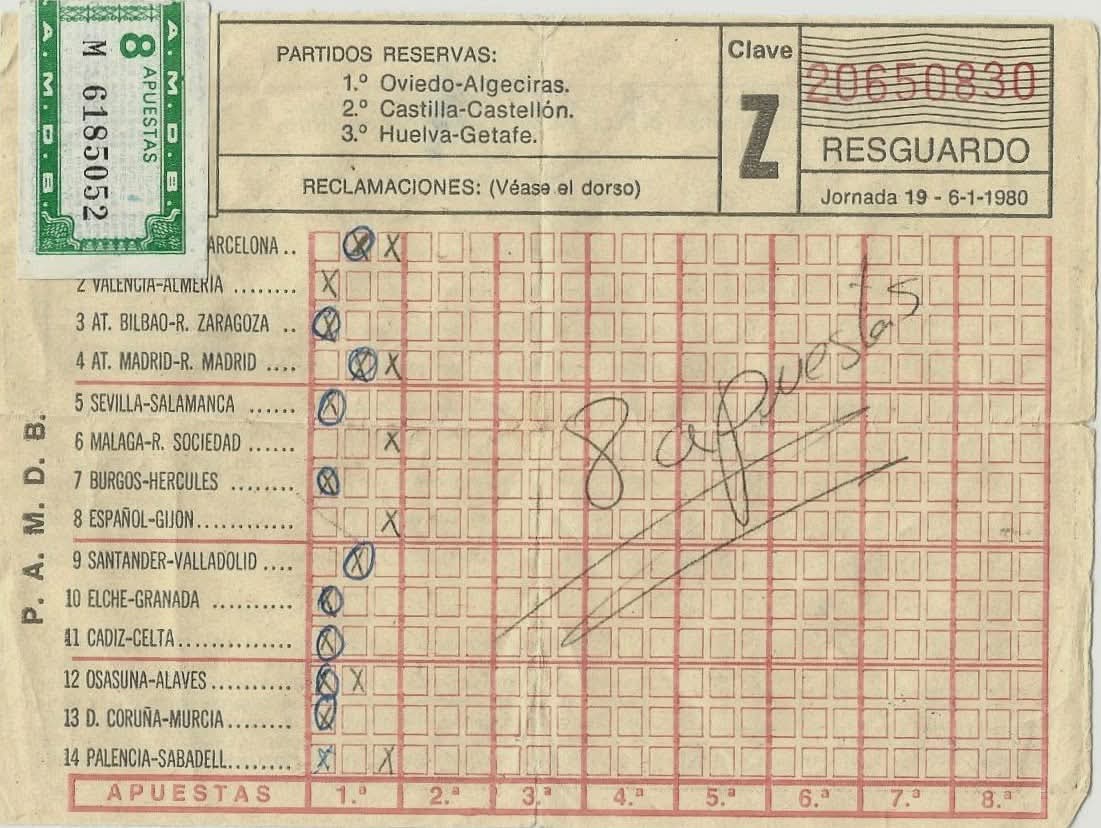 A.M.D.B.
8 APUESTAS
M 6185052
A.M.D.B.
PARTIDOS RESERVAS:
1.º Oviedo-Algeciras.
2.º Castilla-Castellón.
3.º Huelva-Getafe.
RECLAMACIONES: (Véase el dorso)
Clave
Z
20650830
RESGUARDO
Jornada 19 - 6-1-1980
ARCELONA .. X X
2 VALENCIA-ALMERIA ........ X
3 AT. BILBAO-R. ZARAGOZA .. X
4 AT. MADRID-R. MADRID .... X X
5 SEVILLA-SALAMANCA ...... X
6 MALAGA-R. SOCIEDAD ...... X
7 BURGOS-HERCULES ........ X
8 ESPAÑOL-GIJON............ X
9 SANTANDER-VALLADOLID .... X
10 ELCHE-GRANADA .......... X
11 CADIZ-CELTA.............. X
12 OSASUNA-ALAVES.......... X X
13 D. CORUÑA-MURCIA........ X
14 PALENCIA-SABADELL........ X X
8 apuestas
P. A. M. D. B.
APUESTAS 1.ª 2.ª 3.ª 4.ª 5.ª 6.ª 7.ª 8.ª